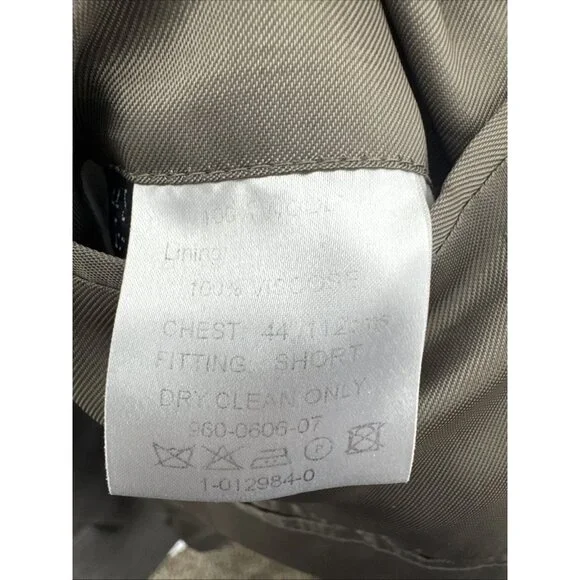 100% WOOL
Lining:
100% VISCOSE
CHEST: 44"/112cms
FITTING: SHORT
DRY CLEAN ONLY
960-0606-07
P
1-012984-0